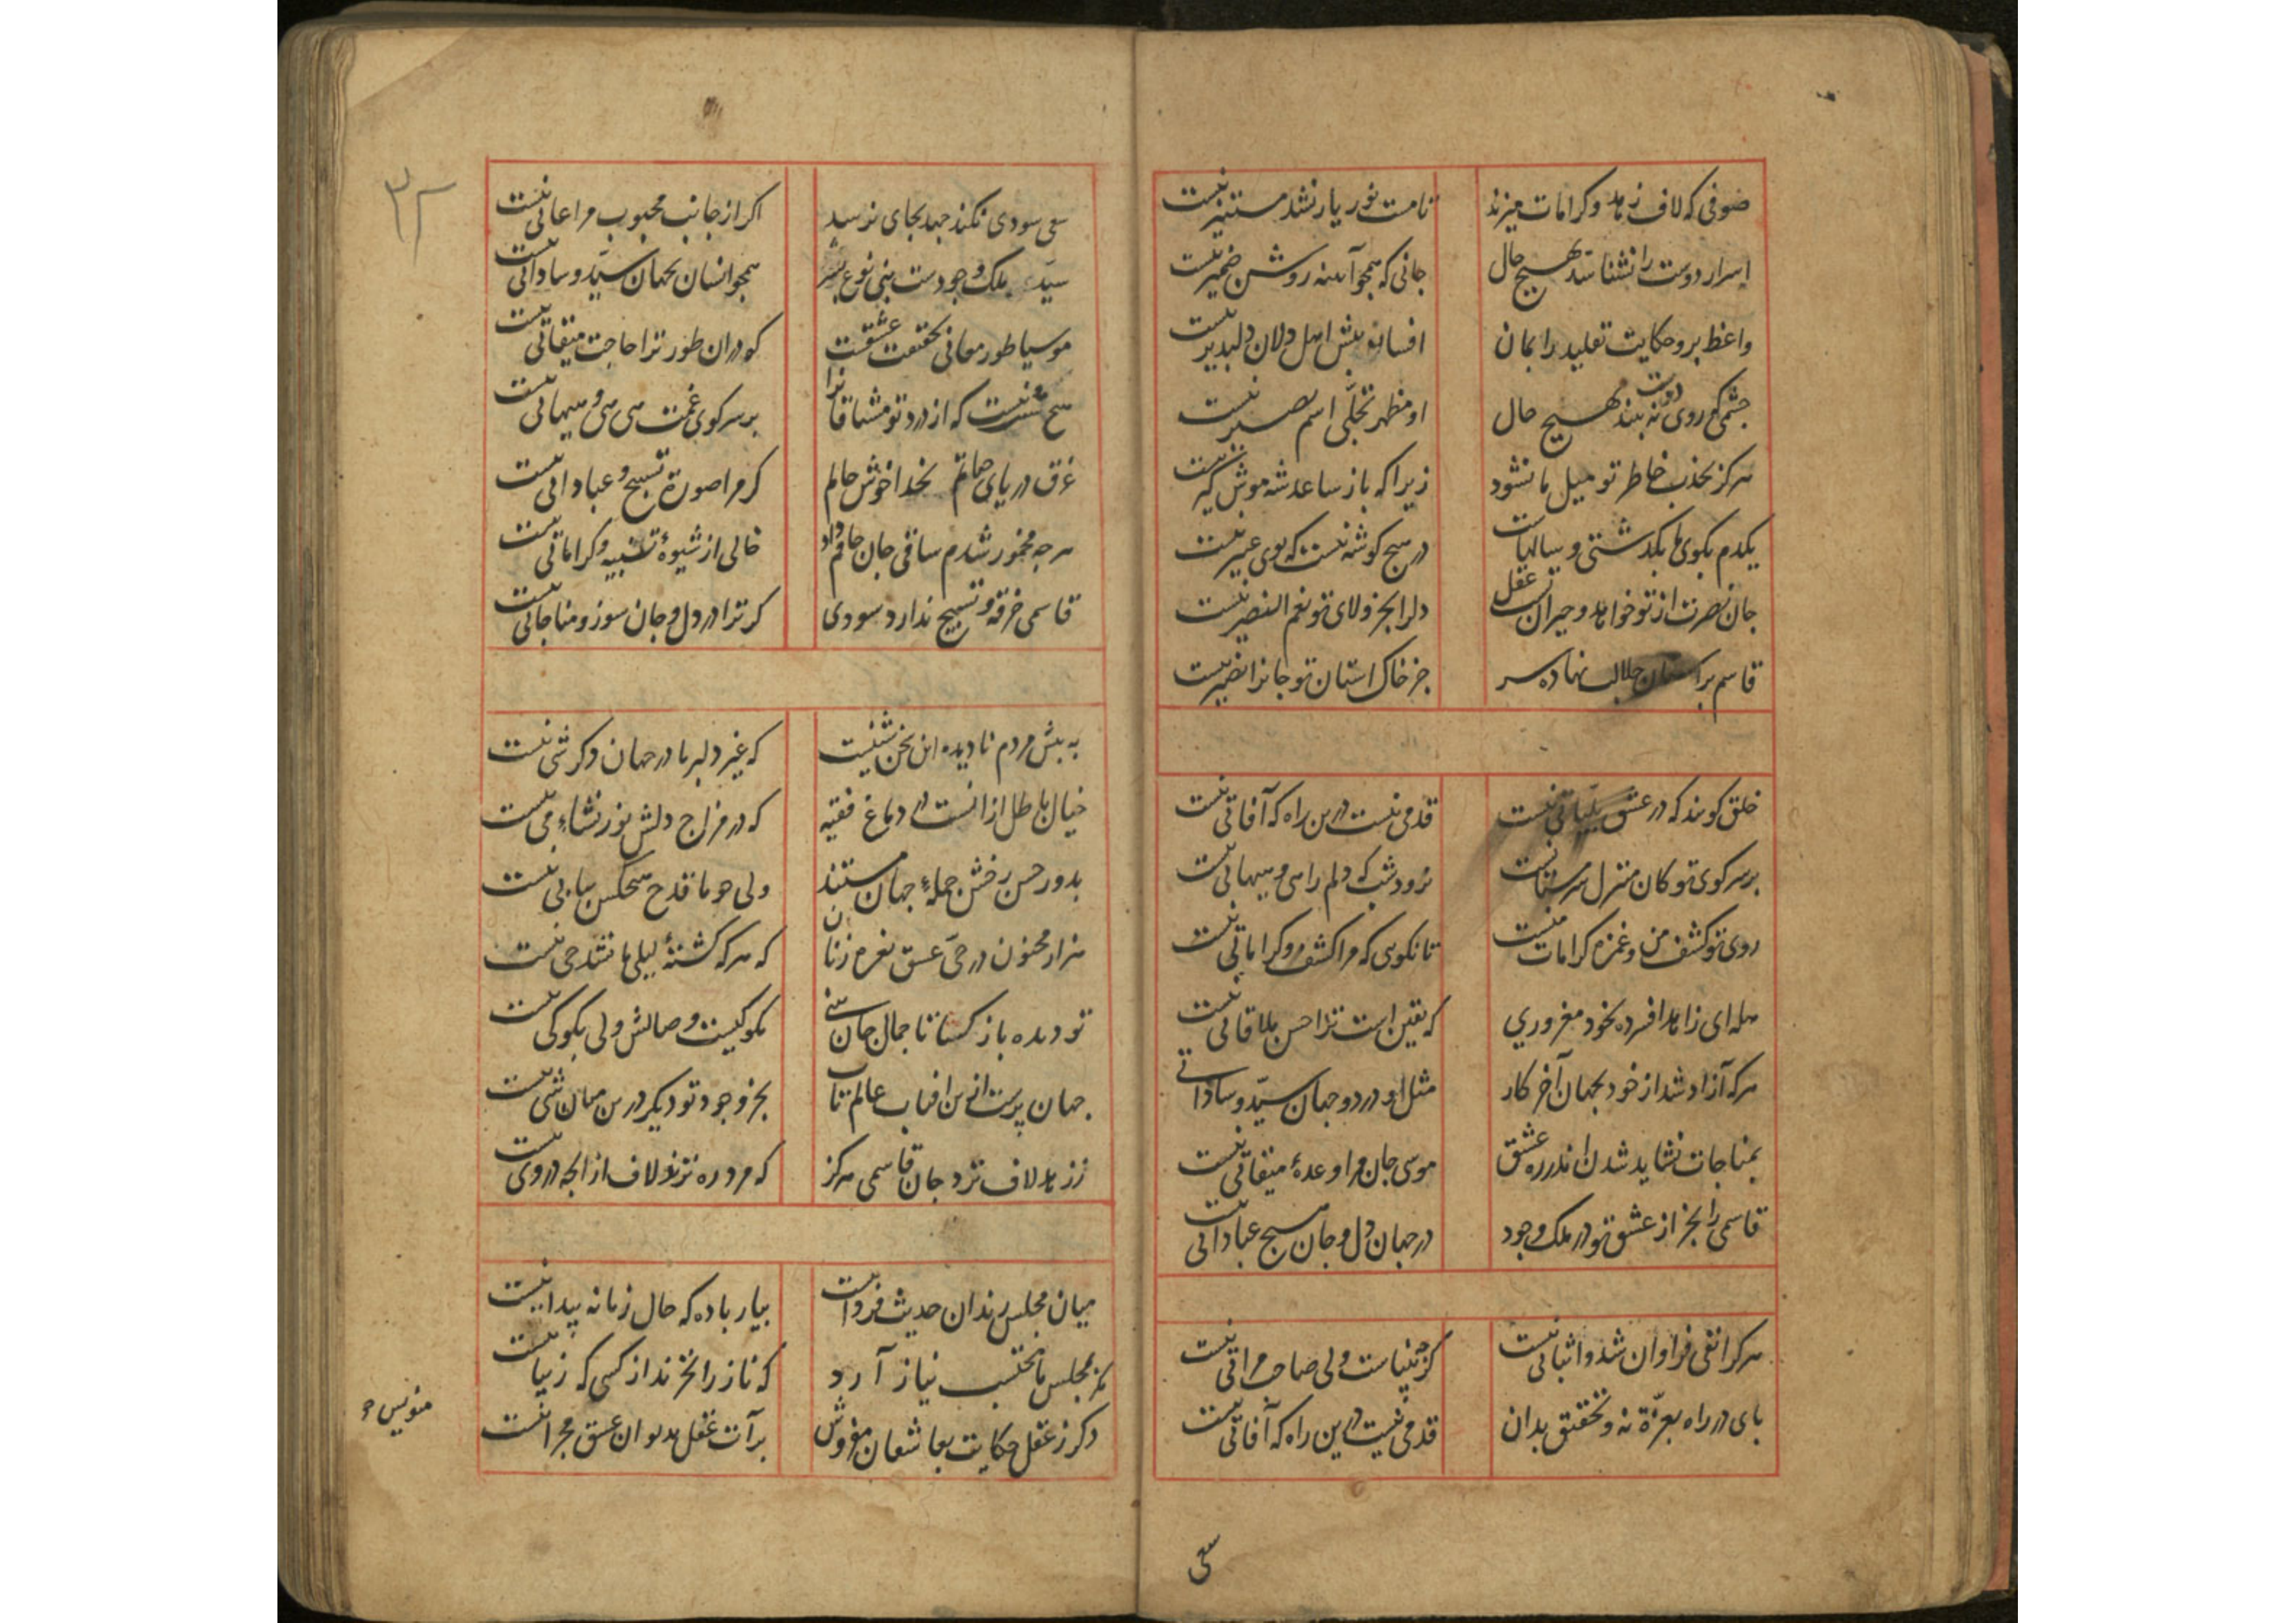 صوفی که لاف زهد و کرامات میزند تا مست نور یار نشد مستنیر نیست
اسرار دوست را نشناسد بهیچ حال جانی که همچو آینه روشن ضمیر نیست
واعظ برو حکایت تقلید را بمان افسانه پیش اهل دلان دلپذیر نیست
چشمی که روی دوست نه بیند بهیچ حال او مظهر تجلّی اسم بصیر نیست
هرگز بجذب خاطر تو میل ما نشود زیرا که باز ساعد شه موش گیر نیست
یکدم بکوی ما بگذشتی و سالهاست در هیچ کوشه نیست که بوی عبیر نیست
جان نصرت از تو خواهد و حیران تست عقل دلرا بجز ولای تو نعم النصیر نیست
قاسم بر استان جلالت نهاده سر جز خاک استان تو جانرا نصیر نیست
خلق کویند که در عشق بلیّاتی نیست قدمی نیست درین راه که آفاتی نیست
بر سر کوی تو کان منزل سرمستانست نرود شب که دلم را هی و هیهاتی نیست
روی تو کشف من و غمزه کرامات منست تا نکویی که مرا کشف و کراماتی نیست
هله ای زاهد افسرده بخود مغروری که یقین است ترا حسن ملاقاتی نیست
هرکه آزاد شد از خود بجهان آخر کار مثل او در دو جهان سیّد و ساداتی
بمناجات نشاید شدن اندر ره عشق موسی جان مرا وعدهٔ میقاتی نیست
قاسمی را بجز از عشق تو در ملک وجود در جهان دل و جان هیچ عباداتی نیست
هر کرا نفی فراوان شد و اثباتی نیست کرچه بیناست ولی صاحب مرآتی نیست
پای در راه بعزّة نه و تحقیق بدان قدمی نیست درین راه که آفاتی نیست
سعی
۳۲
سعی سودی نکند جهد بجای نرسد اکر از جانب محبوب مراعاتی نیست
سیّد ملک وجودست بنی نوع بشر همچو انسان بجهان سیّد و ساداتی نیست
موسیا طور معانی بحقیقت عشقست کو در ان طور ترا حاجت میقاتی نیست
هیچ شب نیست که از درد تو مشتاقانرا بر سر کوی غمت هی هی و هیهاتی نیست
غرق دریای حیاتم بخدا خوش حالم کر مرا صورة تسبیح و عباداتی نیست
هرچه مخمور شدم ساقی جان جامم داد خالی از شیوهٔ تنبیه و کراماتی نیست
قاسمی خرقه و تسبیح ندارد سودی کر ترا در دل و جان سوز و مناجاتی نیست
به پیش مردم نادیده این سخن شنیست که غیر دلبر ما در جهان دکر شی نیست
خیال باطل از انست در دماغ فقیه که در مزاج دلش نور نشاءِ می نیست
بدور حسن رخش جملهٔ جهان مستند ولی چو ما قدح هیچکس پیاپی نیست
هزار مجنون در حیّ عشق نعره زنان که هرکه کشتهٔ لیلی ما نشد حی نیست
تو دیده باز کشا تا جمال جان بینی مکو کیست وصالش ولی بکو کی نیست
جهان پرست ازین افتاب عالم تاب بجز وجود تو دیکر درین میان شی نیست
ز زهد لاف نزد جان قاسمی هرکز که مرد ره نزند لاف از انچه در وی نیست
میان مجلس رندان حدیث فردا نیست بیار باده که حال زمانه پیدا نیست
مکر بمجلس ما محتسب نیاز آرد که ناز را نخرند از کسی که زیبا نیست
دکر ز عقل حکایت بعاشقان مفروش برآت عقل بدیوان عشق مجرا نیست
منویس